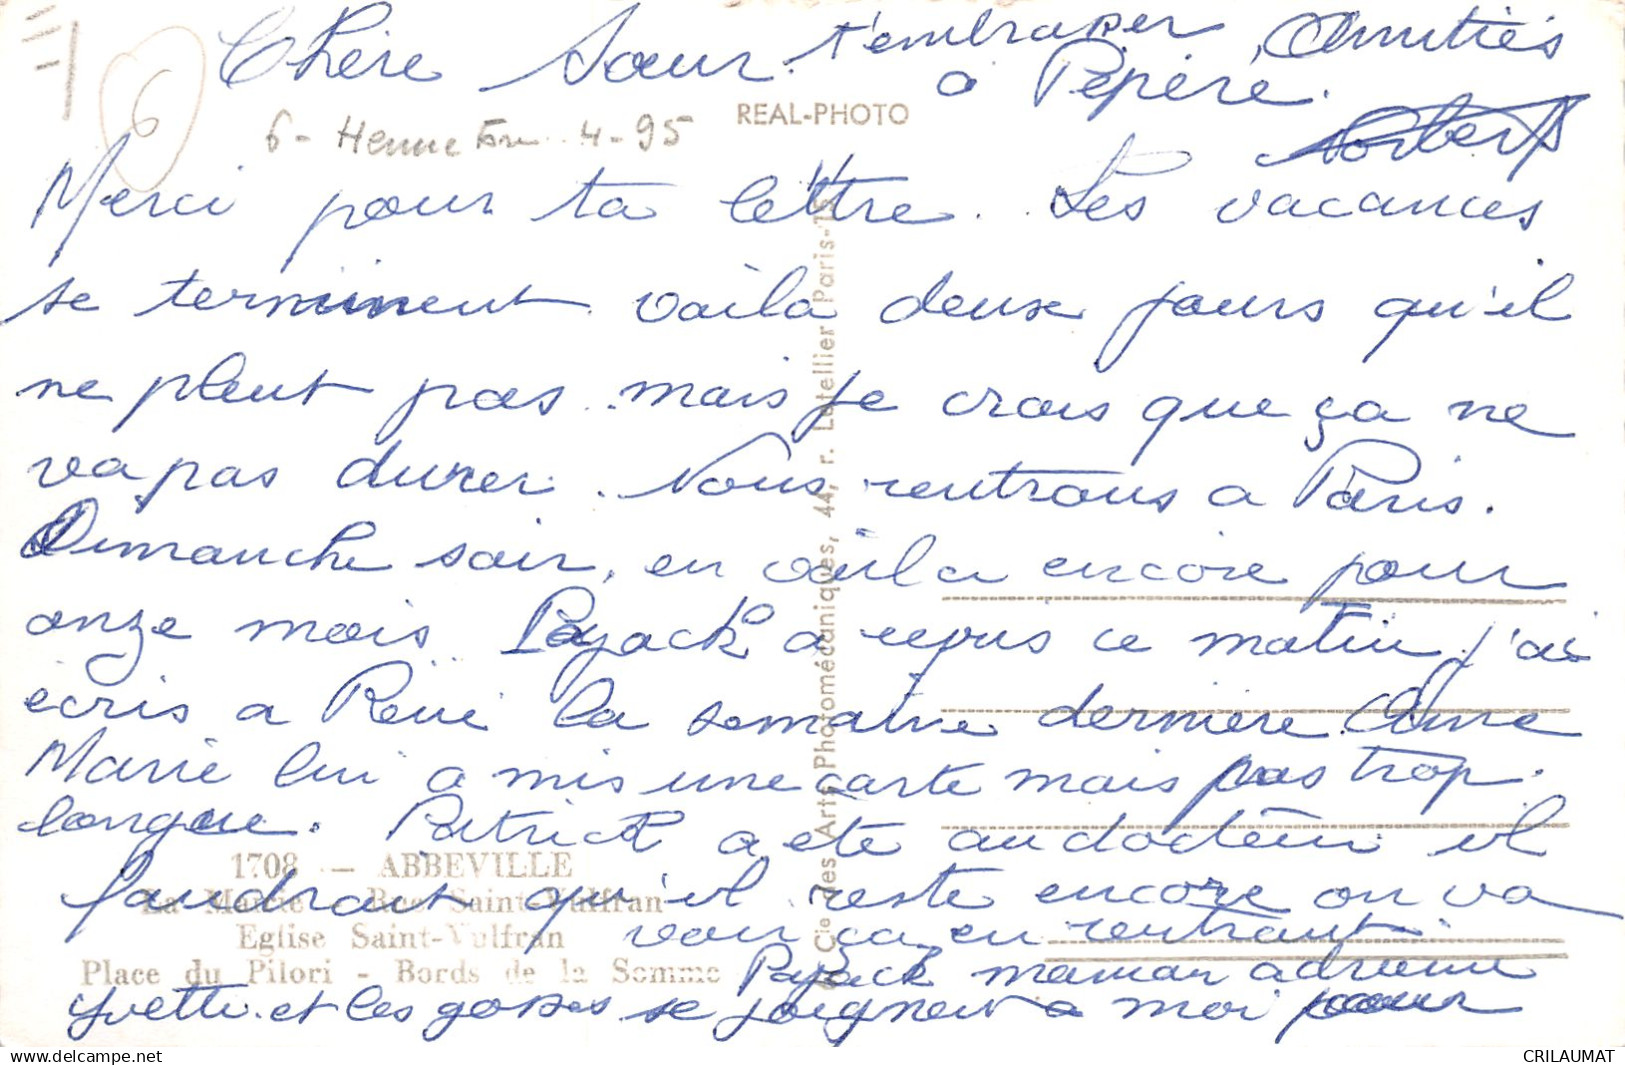 Chère Sœur. t'embrasser, Amitiés
à Pépère.
Norbert
REAL-PHOTO
6 - 4-95
Merci pour ta lettre. Les vacances
se terminent voila deux jours qu'il
ne pleut pas. mais je crois que ça ne
va pas durer. Nous rentrons a Paris.
Dimanche soir, en voila encore pour
onze mois. Payack a reçus ce matin j'ai
écris a René la semaine dernière. Anne
Marie lui a mis une carte mais pas trop
longue. Patrick a été au docteur il
faudrait qu'il reste encore on va
voir ça en rentrant.
Payack maman adrienne
Yvette et les gosses se joignent a moi pour
1708 — ABBEVILLE
La Mairie - Rue Saint-Vulfran
Eglise Saint-Vulfran
Place du Pilori - Bords de la Somme
Cie des Arts Photomécaniques, 44, r. Letellier Paris-15
delcampe.net
CRILAUMAT